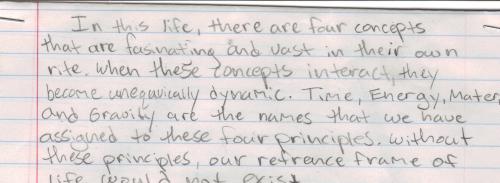 In this life, there are four concepts
that are fasinating and vast in their own
rite. When these concepts interact, they
become unequivically dynamic. Time, Energy, Mater,
and Gravity are the names that we have
assigned to these four principles. without
these principles, our refrence frame of
life would not exist.